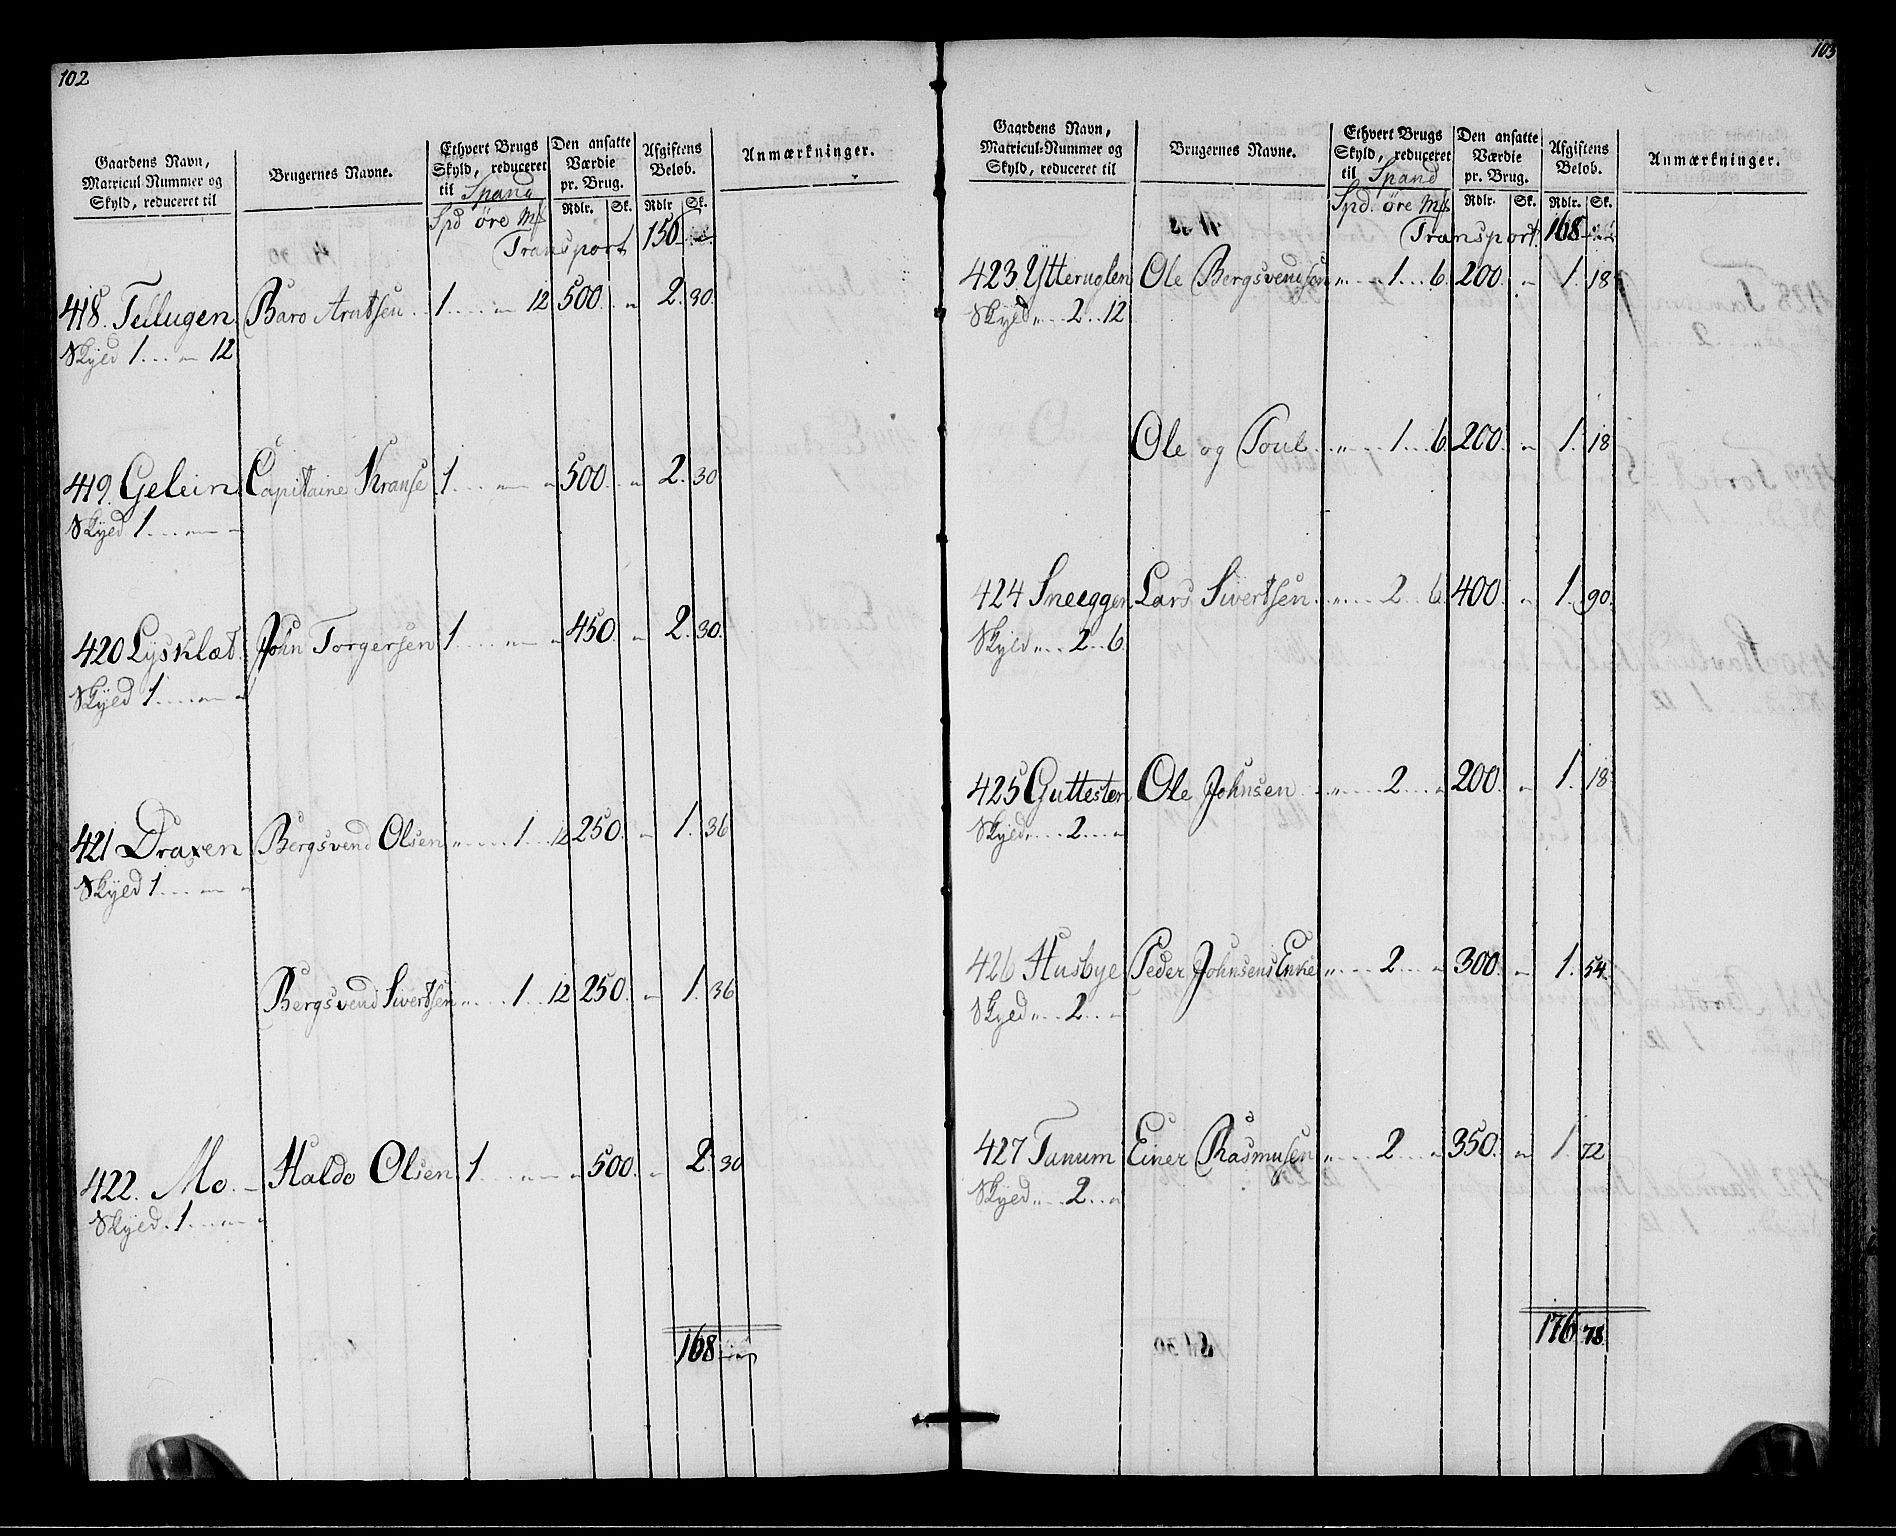 102
Gaardens Navn, Matricul-Nummer og Skyld, reduceret til | Brugernes Navne. | Ethvert Brugs Skyld, reduceret til Spand | Den ansatte Værdie pr. Brug. | Afgiftens Beløb. | Anmærkninger.
Spd øre Mk | Rdlr. | Sk. | Rdlr | Sk.
Transport 156
418. Tellugen. Baro Arntsen 1 .... „ 12 500. „ 2. 30.
Skyld 1 ... „ 12
419. Gelein Capitaine Kranse 1 .... „ „ 500. „ 2. 30
Skyld 1 ... „ „
420 Lysklæt. John Torgersen 1 .... „ „ 450. „ 2. 30.
Skyld 1 .... „ „
421 Draxen Bergsvend Olsen „ .... 1 .. 12 250. „ 1. 36
Skyld 1 ... „ „
Bergsvend Sivertsen „ .... 1 .. 12 250. „ 1. 36
422. Mo. Haldo Olsen 1 .... „ „ 500. „ 2. 30
Skyld. 1 .... „ „
168
103
Gaardens Navn, Matricul-Nummer og Skyld, reduceret til | Brugernes Navne. | Ethvert Brugs Skyld, reduceret til Spand | Den ansatte Værdie pr. Brug. | Afgiftens Beløb. | Anmærkninger.
Spd. øre Mk | Rdlr. | Sk. | Rdlr. | Sk.
Transport. 168
423 Ytteruglen Ole Bergsvendsen „ .. 1 ... 6. 200. „ 1. 18
Skyld „ ... 2 .. 12
Ole og Poul „ ... 1 ... 6. 200. „ 1. 18
424 Sneeggen Lars Sivertsen „ ... 2 .. 6. 400. „ 1. 90.
Skyld „ ... 2 .. 6.
425 Guttesten Ole Johnsen „ ... 2 ... „ 200. „ 1. 18
Skyld „ ... 2 ... „
426 Husbye Peder Johnsens Enke „ ... 2 ... „ 300. „ 1. 54.
Skyld „ ... 2 .. „
427 Tanum Einer Rasmusen „ ... 2 ... „ 350. „ 1. 72
Skyld „ ... 2 ... „
176. 78.